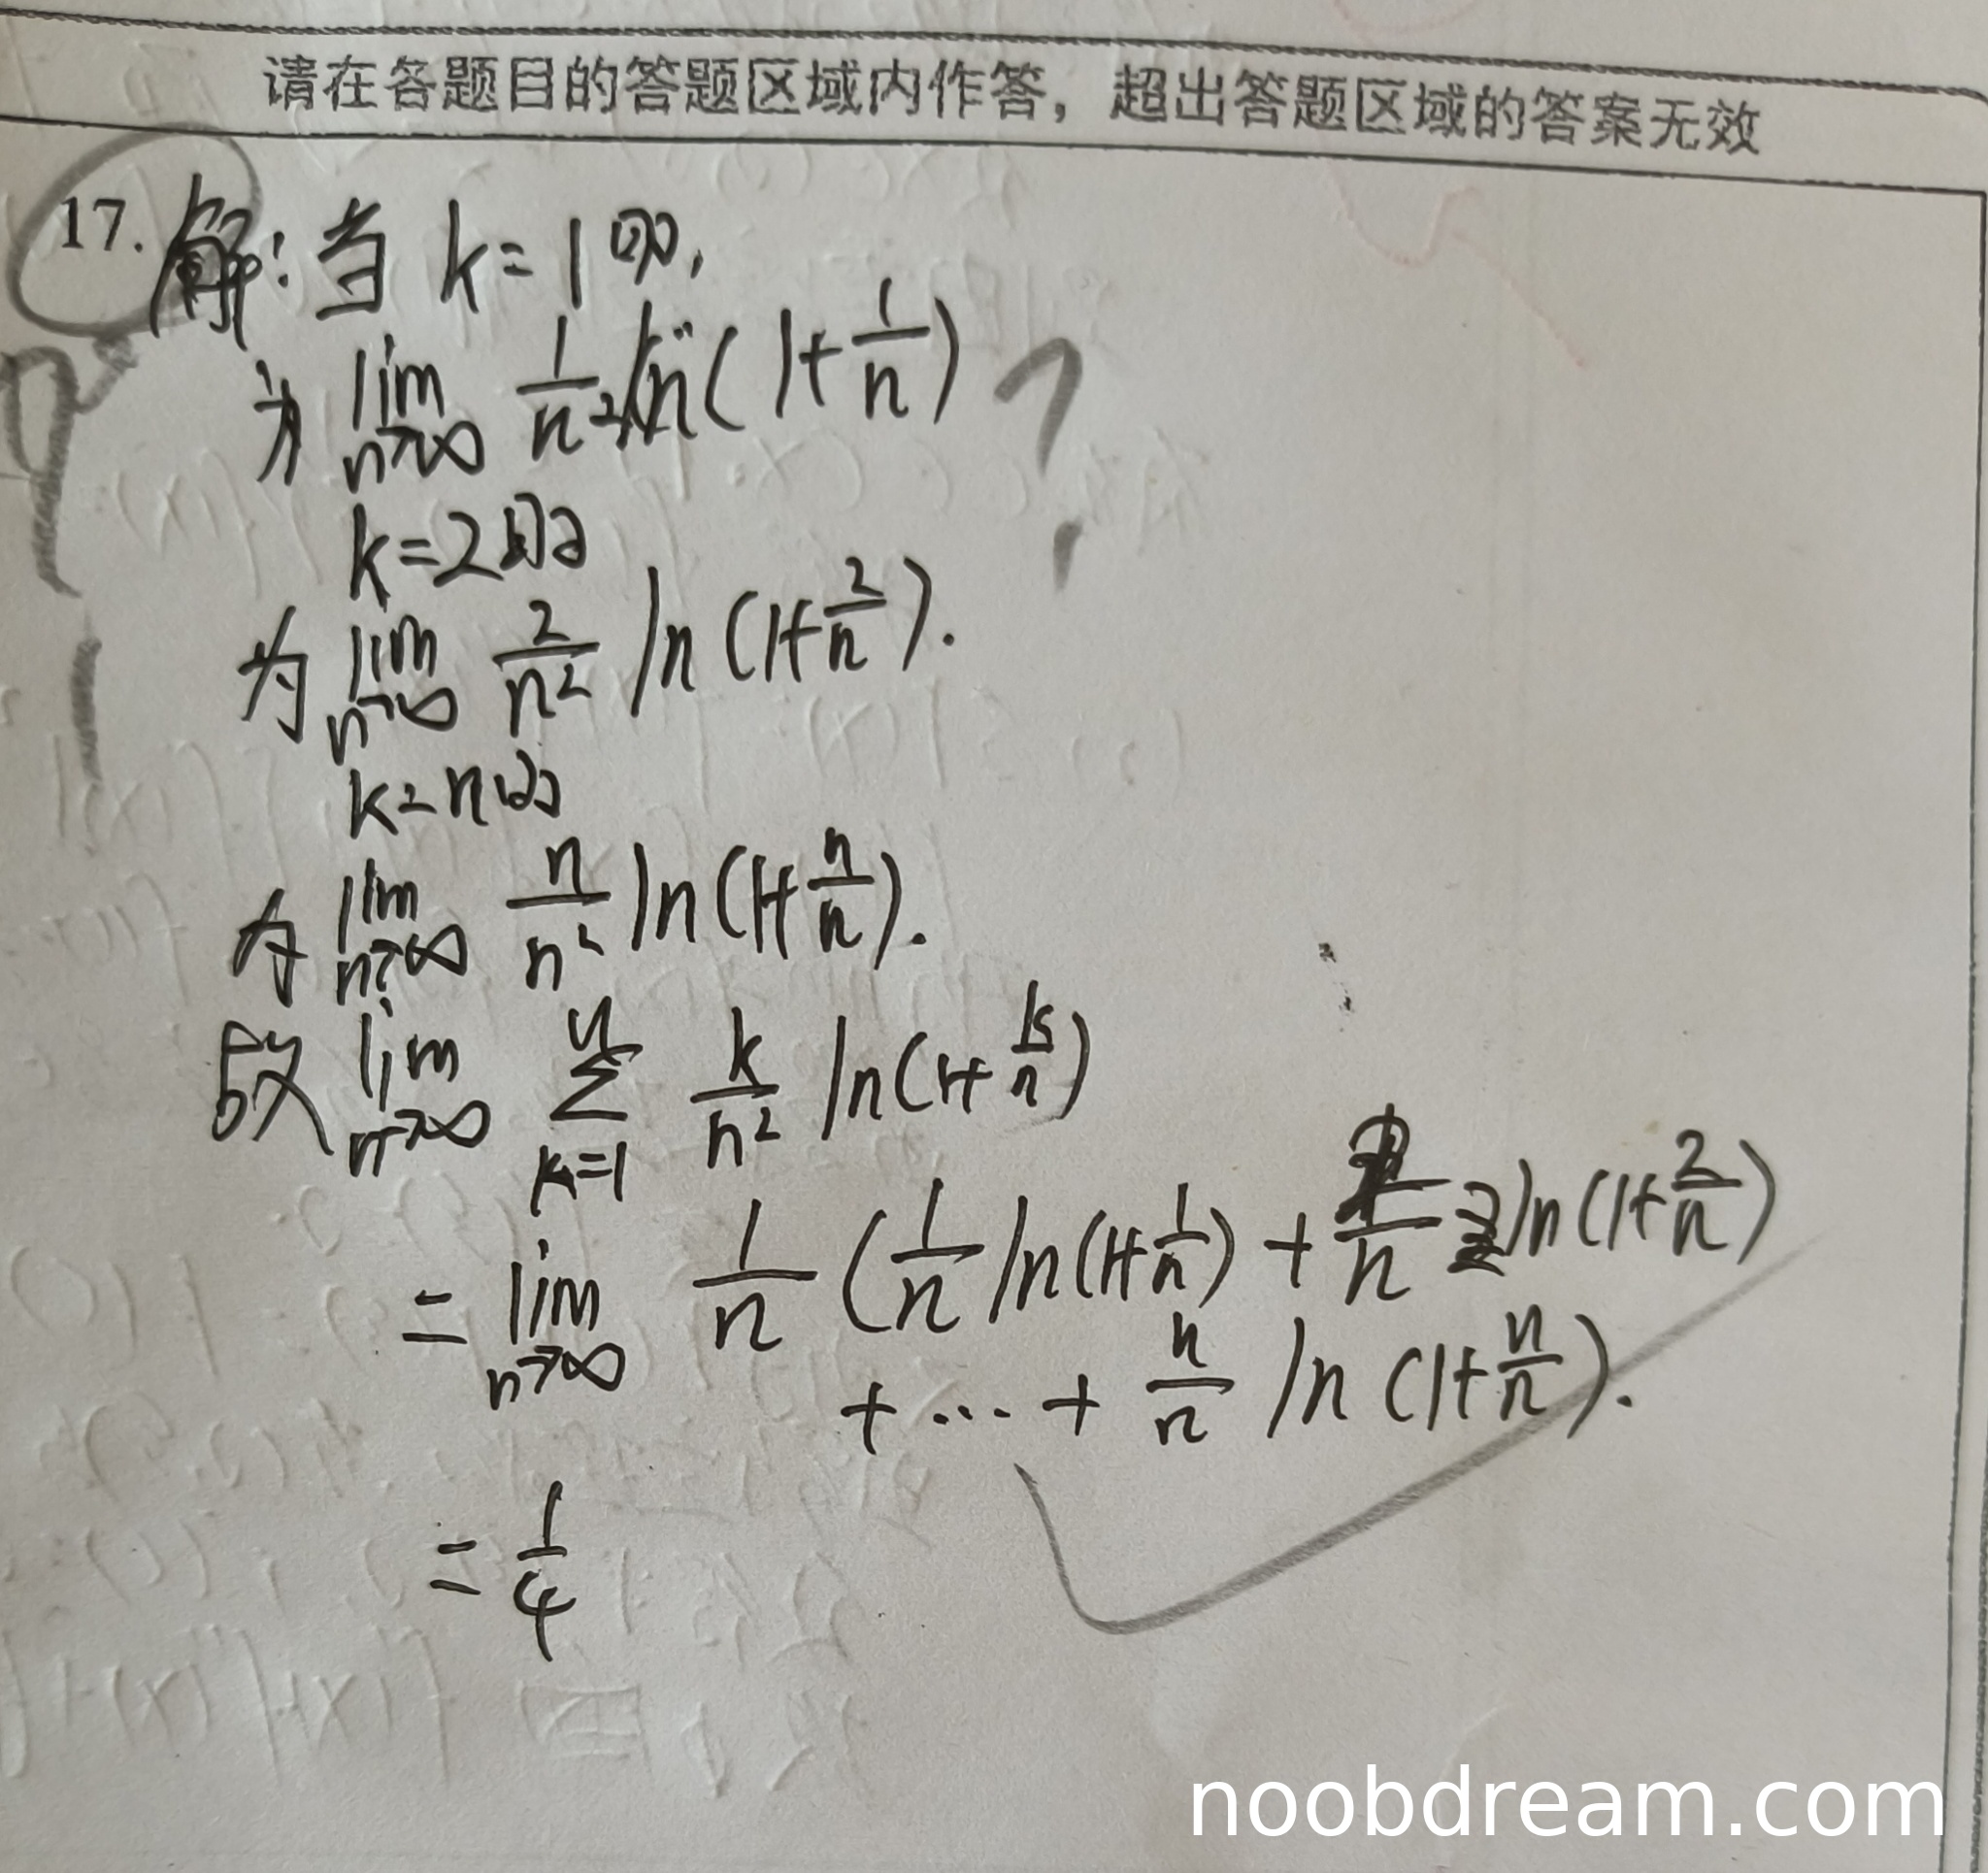 请在各题目的答题区域内作答，超出答题区域的答案无效
17. 解：当 k=1时,
为 lim n→∞ 1/n² ln(1+1/n) ?
k=2时
为 lim n→∞ 2/n² ln(1+2/n).
k=n时
为 lim n→∞ n/n² ln(1+n/n).
故 lim n→∞ n Σ k=1 k/n² ln(1+k/n)
= lim n→∞ 1/n (1/n ln(1+1/n) + 2/n ln(1+2/n)
+ … + n/n ln(1+n/n).
= 1/4
noobdream.com